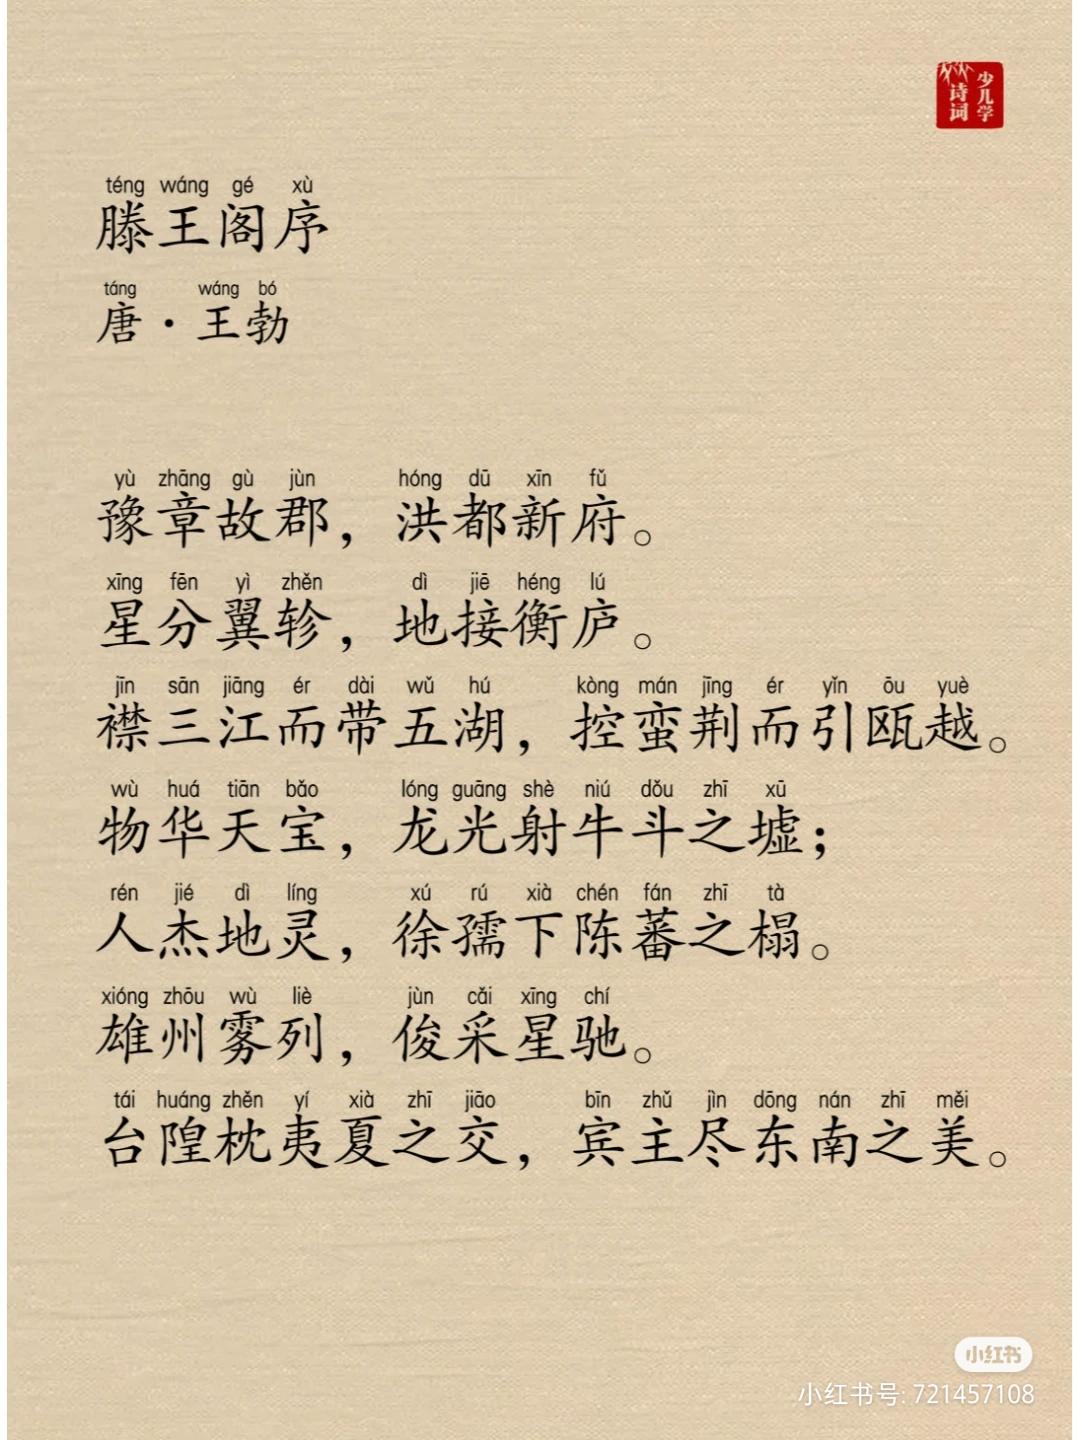 少儿学
诗词
téng wáng gé xù
滕王阁序
táng wáng bó
唐·王勃
yù zhāng gù jùn hóng dū xīn fǔ
豫章故郡，洪都新府。
xīng fēn yì zhěn dì jiē héng lú
星分翼轸，地接衡庐。
jīn sān jiāng ér dài wǔ hú kòng mán jīng ér yǐn ōu yuè
襟三江而带五湖，控蛮荆而引瓯越。
wù huá tiān bǎo lóng guāng shè niú dǒu zhī xū
物华天宝，龙光射牛斗之墟；
rén jié dì líng xú rú xià chén fán zhī tà
人杰地灵，徐孺下陈蕃之榻。
xióng zhōu wù liè jùn cǎi xīng chí
雄州雾列，俊采星驰。
tái huáng zhěn yí xià zhī jiāo bīn zhǔ jìn dōng nán zhī měi
台隍枕夷夏之交，宾主尽东南之美。
小红书
小红书号: 721457108